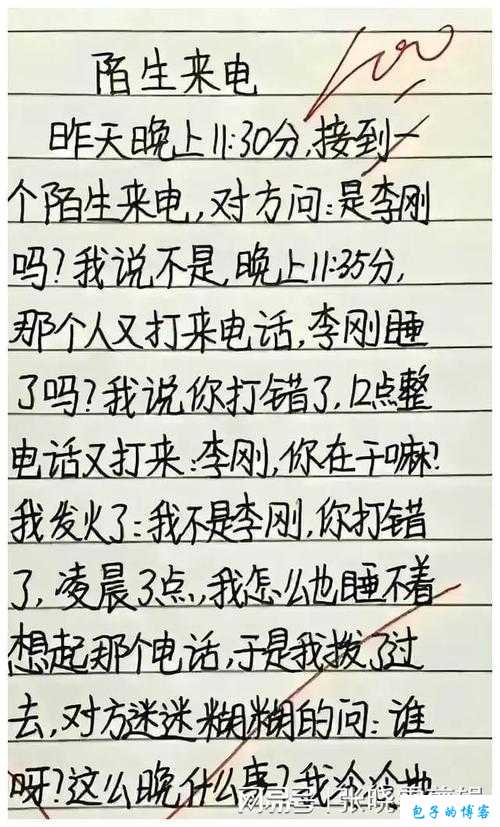 100
陌生来电
昨天晚上11:30分,接到一
个陌生来电,对方问:是李刚
吗?我说不是,晚上11:35分,
那个人又打来电话,李刚睡
了吗?我说你打错了,12点整
电话又打来:李刚,你在干嘛?
我发火了:我不是李刚,你打错
了,凌晨3点,我怎么也睡不着
想起那个电话,于是我拨了过
去,对方迷迷糊糊的问:谁
呀?这么晚什么事?我冷冷地
包子的博客